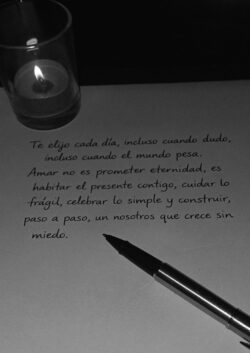 Te elijo cada día, incluso cuando dudo,
incluso cuando el mundo pesa.
Amar no es prometer eternidad, es
habitar el presente contigo, cuidar lo
frágil, celebrar lo simple y construir,
paso a paso, un nosotros que crece sin
miedo.